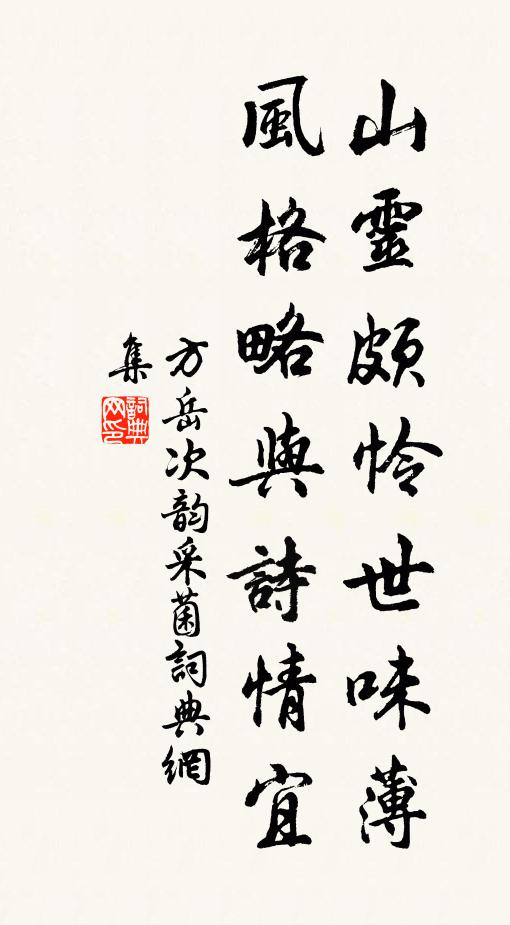 山靈頗怜世味薄
風格略與詩情宜
方岳次韵采菌詞典網
集
詞典
网印